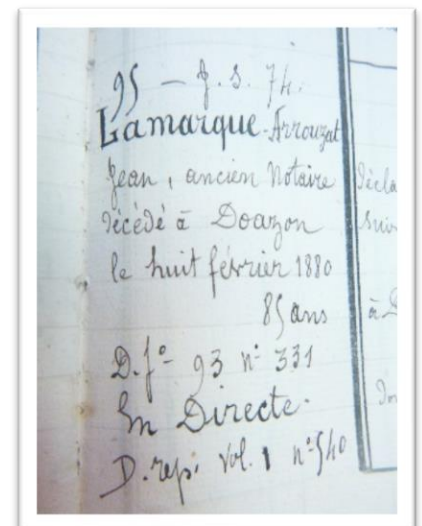 95 — J. S. 74.
Lamarque-Arrouzat
Jean, ancien Notaire
décédé à Doazon
le huit février 1880
85 ans
D. f° 93 n° 331
En Directe.
D. rep. Vol. 1 n° 540
Décla
suiv
à D